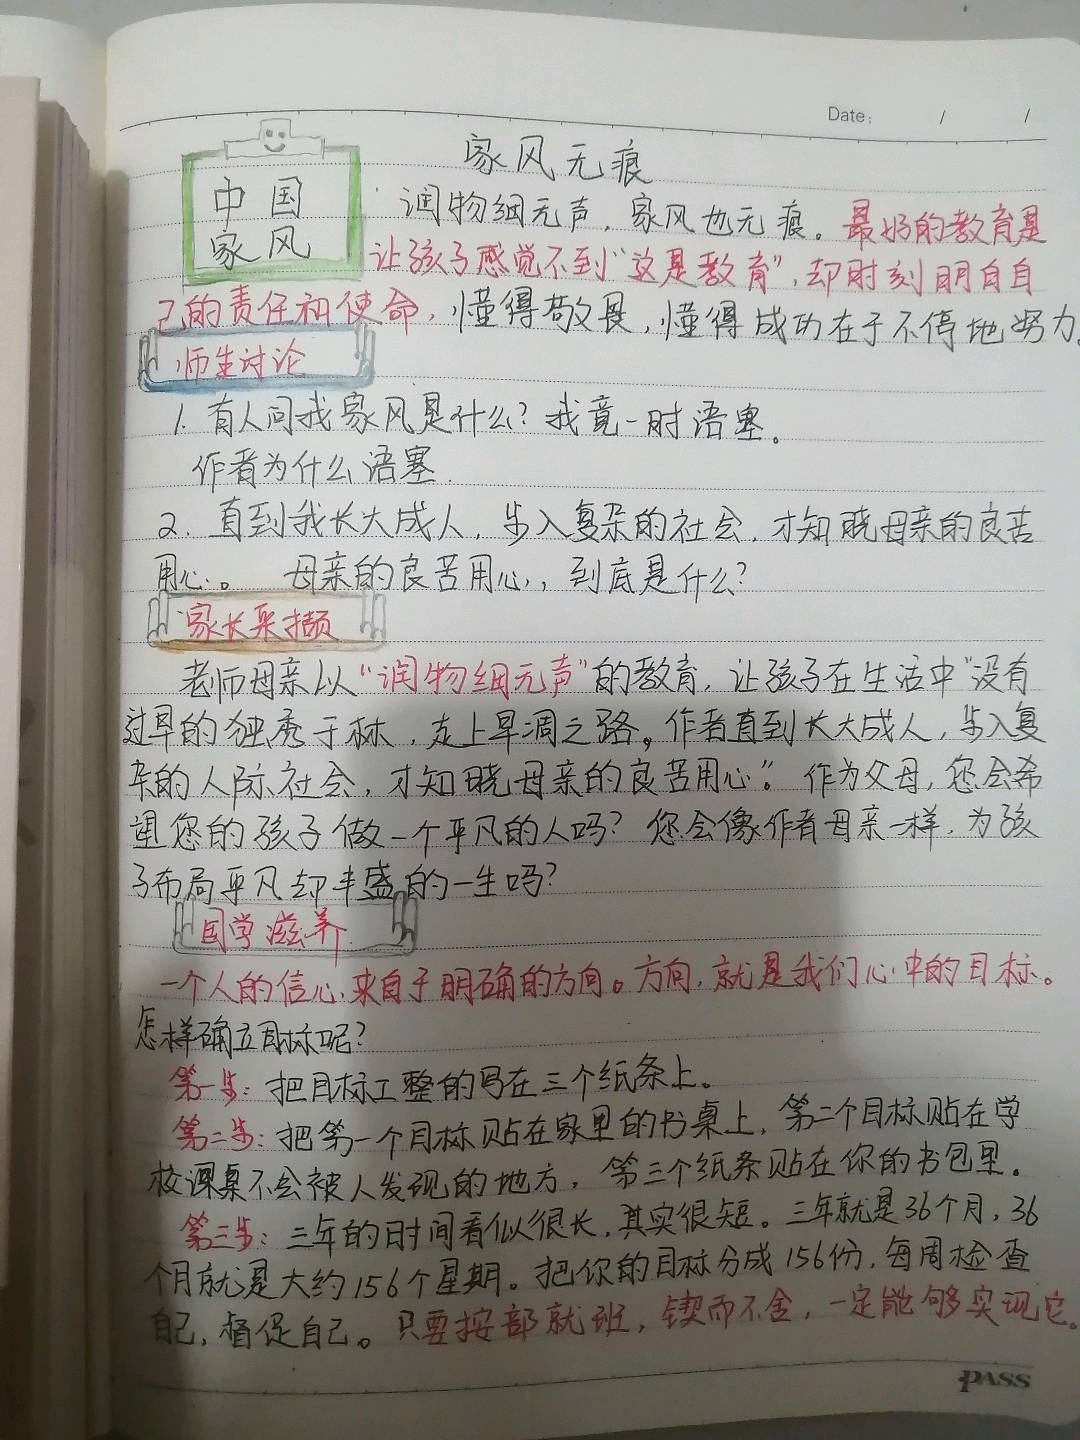 Date: / /
家风无痕
中国
家风
润物细无声，家风也无痕。最好的教育是
让孩子感觉不到“这是教育”，却时刻明白自
己的责任和使命，懂得敬畏，懂得成功在于不停地努力。
师生讨论
1. 有人问我家风是什么？我竟一时语塞。
作者为什么语塞.
2. 直到我长大成人，步入复杂的社会，才知晓母亲的良苦
用心。 母亲的良苦用心，到底是什么？
家长采撷
老师母亲以“润物细无声”的教育，让孩子在生活中“没有
过早的独秀于林，走上早凋之路。作者直到长大成人，步入复
杂的人际社会，才知晓母亲的良苦用心”。作为父母，您会希
望您的孩子做一个平凡的人吗？您会像作者母亲一样，为孩
子布局平凡却丰盛的一生吗？
国学滋养
一个人的信心，来自于明确的方向。方向，就是我们心中的目标。
怎样确立目标呢？
第一步：把目标工整的写在三个纸条上。
第二步：把第一个目标贴在家里的书桌上，第二个目标贴在学
校课桌不会被人发现的地方，第三个纸条贴在你的书包里。
第三步：三年的时间看似很长，其实很短。三年就是36个月，36
个月就是大约156个星期。把你的目标分成156份，每周检查
自己，督促自己。只要按部就班，锲而不舍，一定能够实现它。
PASS